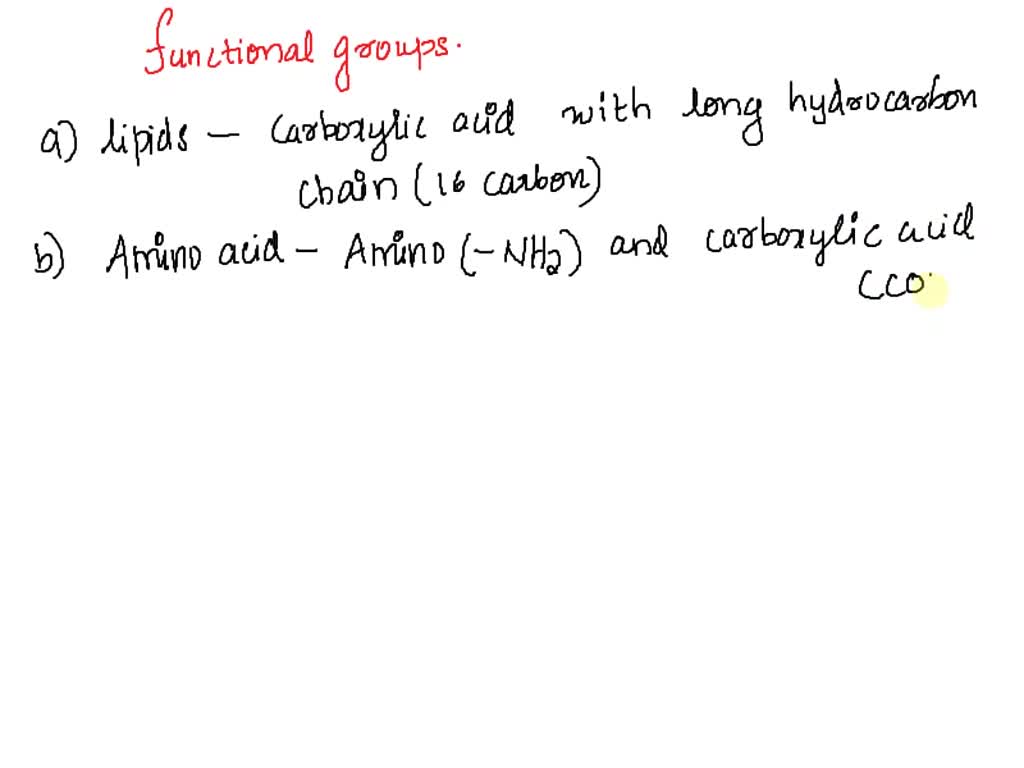 functional groups.
a) lipids – carboxylic acid with long hydrocarbon
chain (16 carbon)
b) Amino acid – Amino (-NH2) and carboxylic acid
(CO